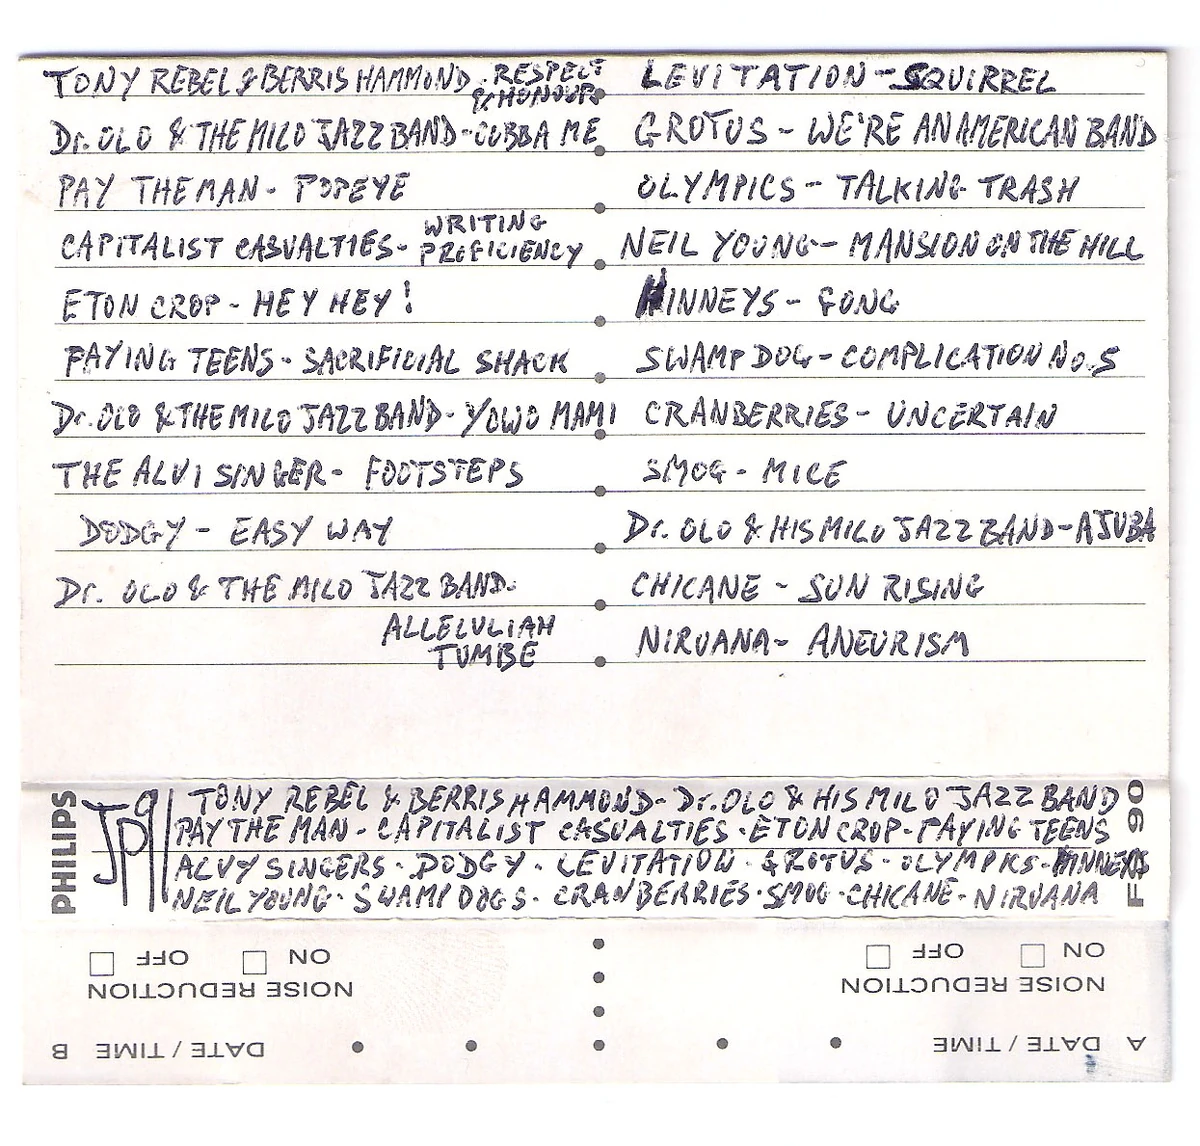 TONY REBEL & BERRIS HAMMOND - RESPECT & HONOUR
Dr. OLO & THE MILO JAZZ BAND - CUBBA ME
PAY THE MAN - POPEYE
CAPITALIST CASUALTIES - WRITING PROFICIENCY
ETON CROP - HEY HEY!
FAYING TEENS - SACRIFICIAL SHACK
Dr. OLO & THE MILO JAZZ BAND - YOWO MAMI
THE ALVI SINGER - FOOTSTEPS
DODGY - EASY WAY
Dr. OLO & THE MILO JAZZ BAND -
ALLELULIAH
TUMBE
LEVITATION - SQUIRREL
GROTUS - WE'RE AN AMERICAN BAND
OLYMPICS - TALKING TRASH
NEIL YOUNG - MANSION ON THE HILL
HINNEYS - GONG
SWAMP DOG - COMPLICATION No. 5
CRANBERRIES - UNCERTAIN
SMOG - MICE
Dr. OLO & HIS MILO JAZZ BAND - AJUBA
CHICANE - SUN RISING
NIRVANA - ANEURISM
PHILIPS
JP91
TONY REBEL & BERRIS HAMMOND - Dr. OLO & HIS MILO JAZZ BAND
PAY THE MAN - CAPITALIST CASUALTIES - ETON CROP - FAYING TEENS
ALVY SINGERS - DODGY - LEVITATION - GROTUS - OLYMPICS - HINNEYS
NEIL YOUNG - SWAMP DOGS - CRANBERRIES - SMOG - CHICANE - NIRVANA
F 90
A DATE / TIME
NOISE REDUCTION
ON OFF
DATE / TIME B
NOISE REDUCTION
ON OFF